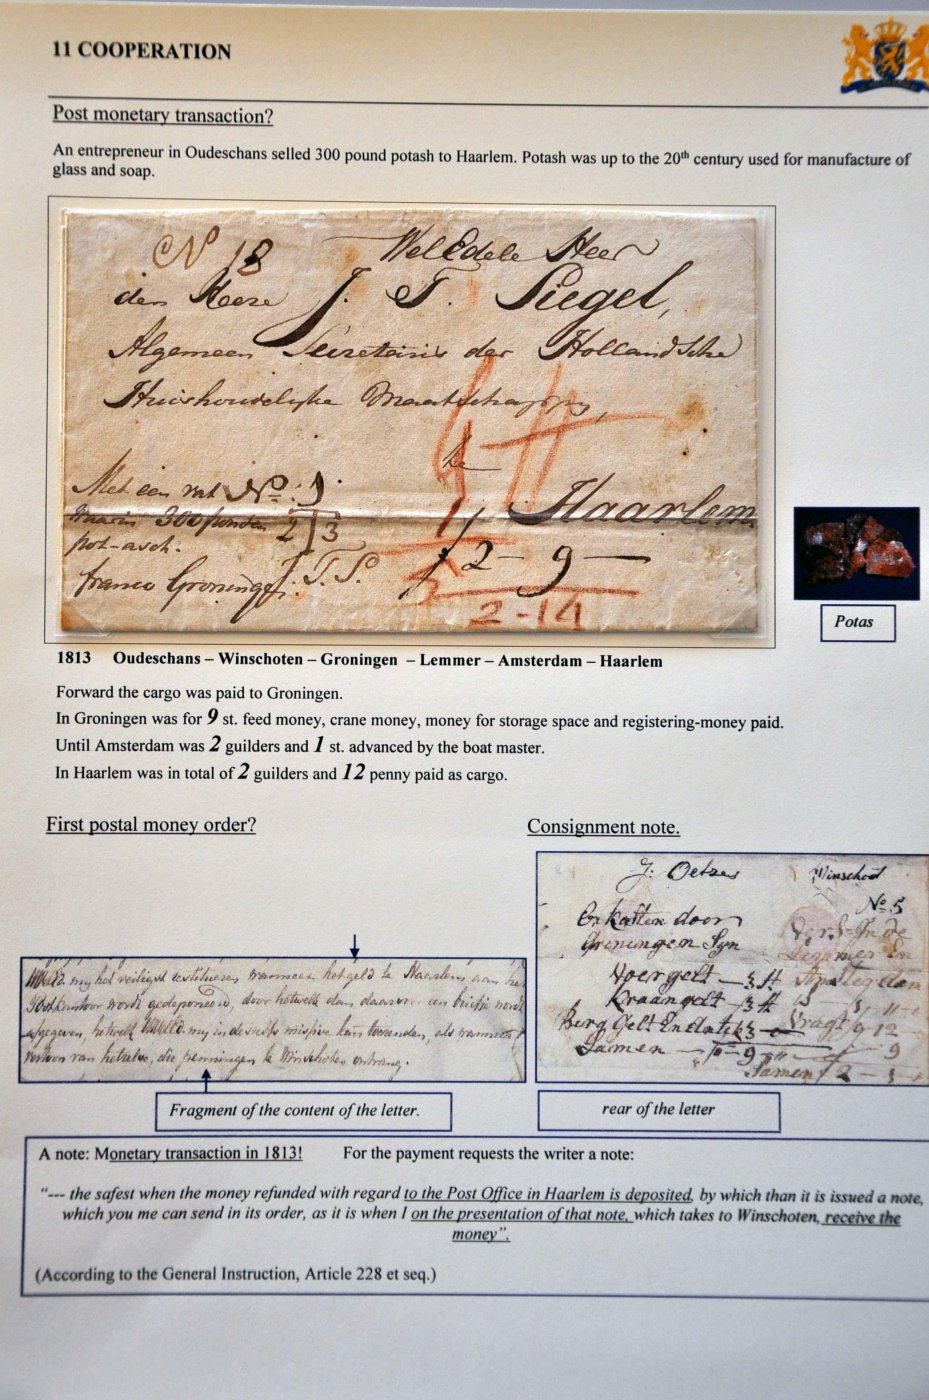 11 COOPERATION
Post monetary transaction?
An entrepreneur in Oudeschans selled 300 pound potash to Haarlem. Potash was up to the 20th century used for manufacture of
glass and soap.
N 18
WelEdele Heer
den Heere J. T. Siegel,
Algemeen Secretaris der Hollandsche
Huishoudelijke Maatschappij,
te
Haarlem
Met een vat No: 1
waarin 300 ponden
pot-asch.
franco Groningen
J. T. S.
2 3
f 2 - 9 -
2-14
Potas
1813 Oudeschans – Winschoten – Groningen – Lemmer – Amsterdam – Haarlem
Forward the cargo was paid to Groningen.
In Groningen was for 9 st. feed money, crane money, money for storage space and registering-money paid.
Until Amsterdam was 2 guilders and 1 st. advanced by the boat master.
In Haarlem was in total of 2 guilders and 12 penny paid as cargo.
First postal money order?
Consignment note.
my het veiligst restitueren wanneer het geld te Haarlem aan het
Postkantoor wordt gedeponeerd, door hetwelk dan daarvan een briefje wordt
afgegeven, hetwelk my in deszelfs missive kan toezenden, als wanneer
vertoon van hetzelve, die penningen te Winschoten ontvang.
J: Oetzes Winschoot
No 5
door
Groningen Syn
Voergelt – 3 st
Kraangelt – 3 st
Samen – 9
Vragt 9 12
Samen f 2 –
Fragment of the content of the letter.
rear of the letter
A note: Monetary transaction in 1813! For the payment requests the writer a note:
“--- the safest when the money refunded with regard to the Post Office in Haarlem is deposited, by which than it is issued a note,
which you me can send in its order, as it is when I on the presentation of that note, which takes to Winschoten, receive the
money”.
(According to the General Instruction, Article 228 et seq.)